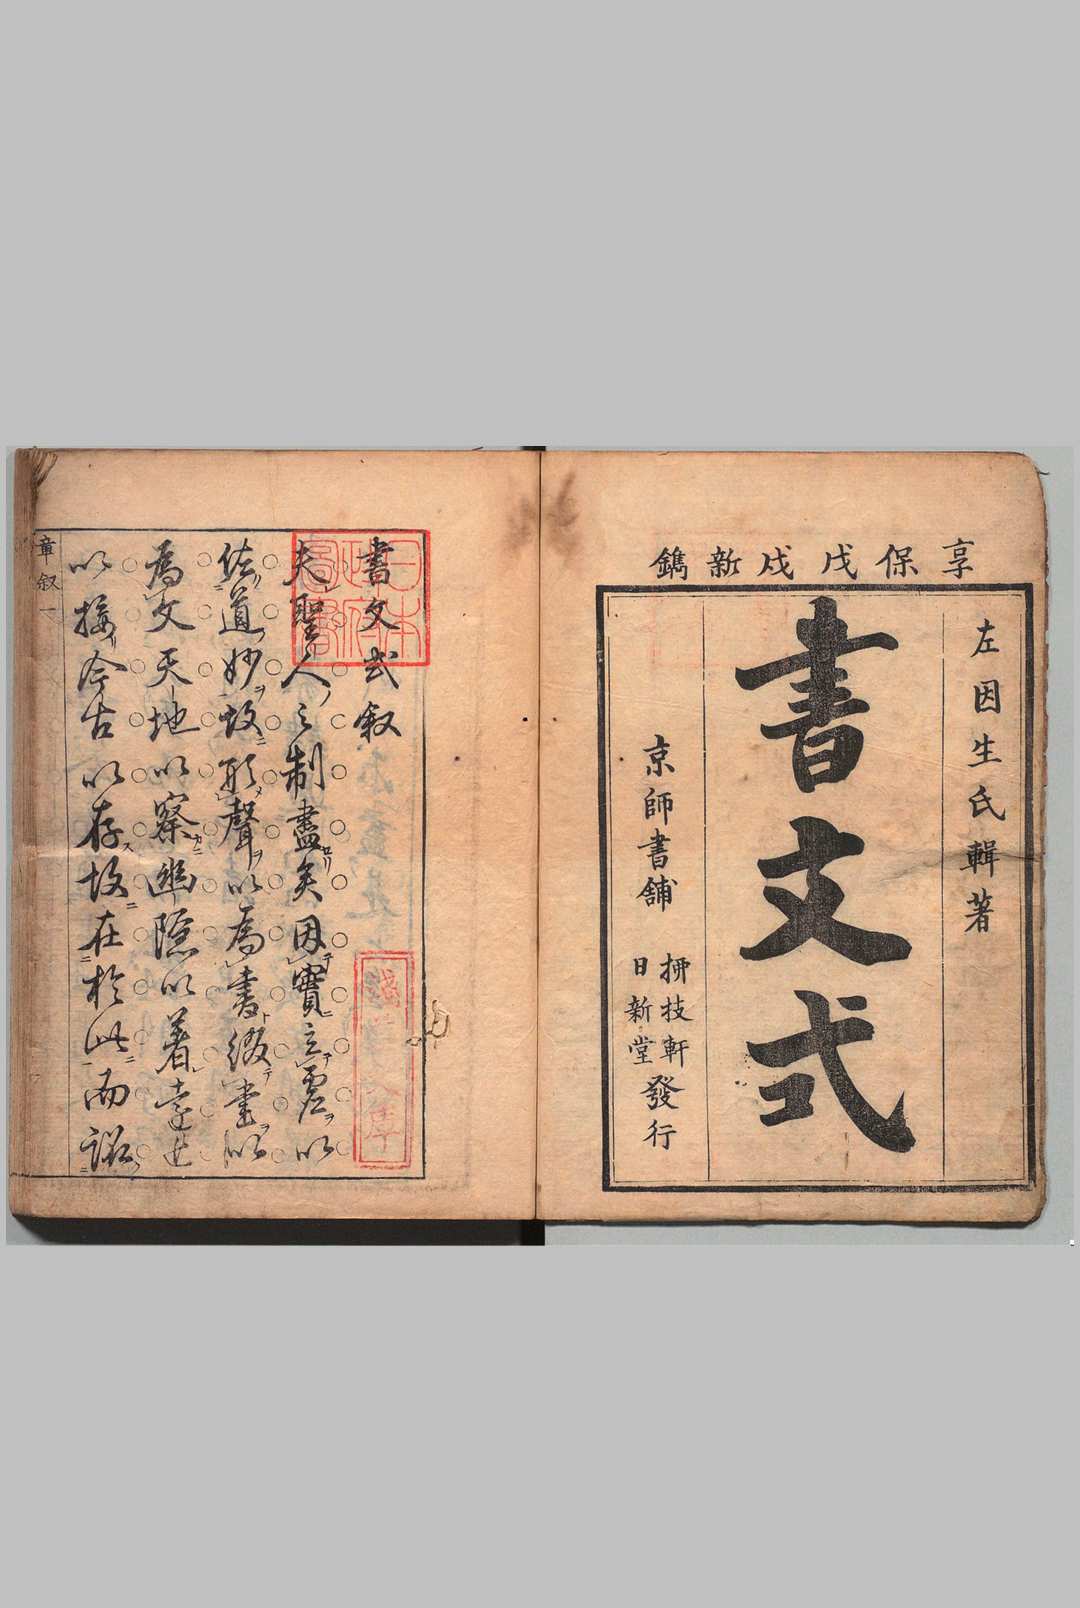 享保戊戌新鐫
左因生氏輯著
書文式
京師書舗
柳枝軒
日新堂
發行
日本
政府
圖書
書文式叙
夫聖人之制盡矣因實立虛以
道妙故形聲以為書綴書以
為文天地以察幽隱以著遠近
以接今古以存故在於此而
章叙 一